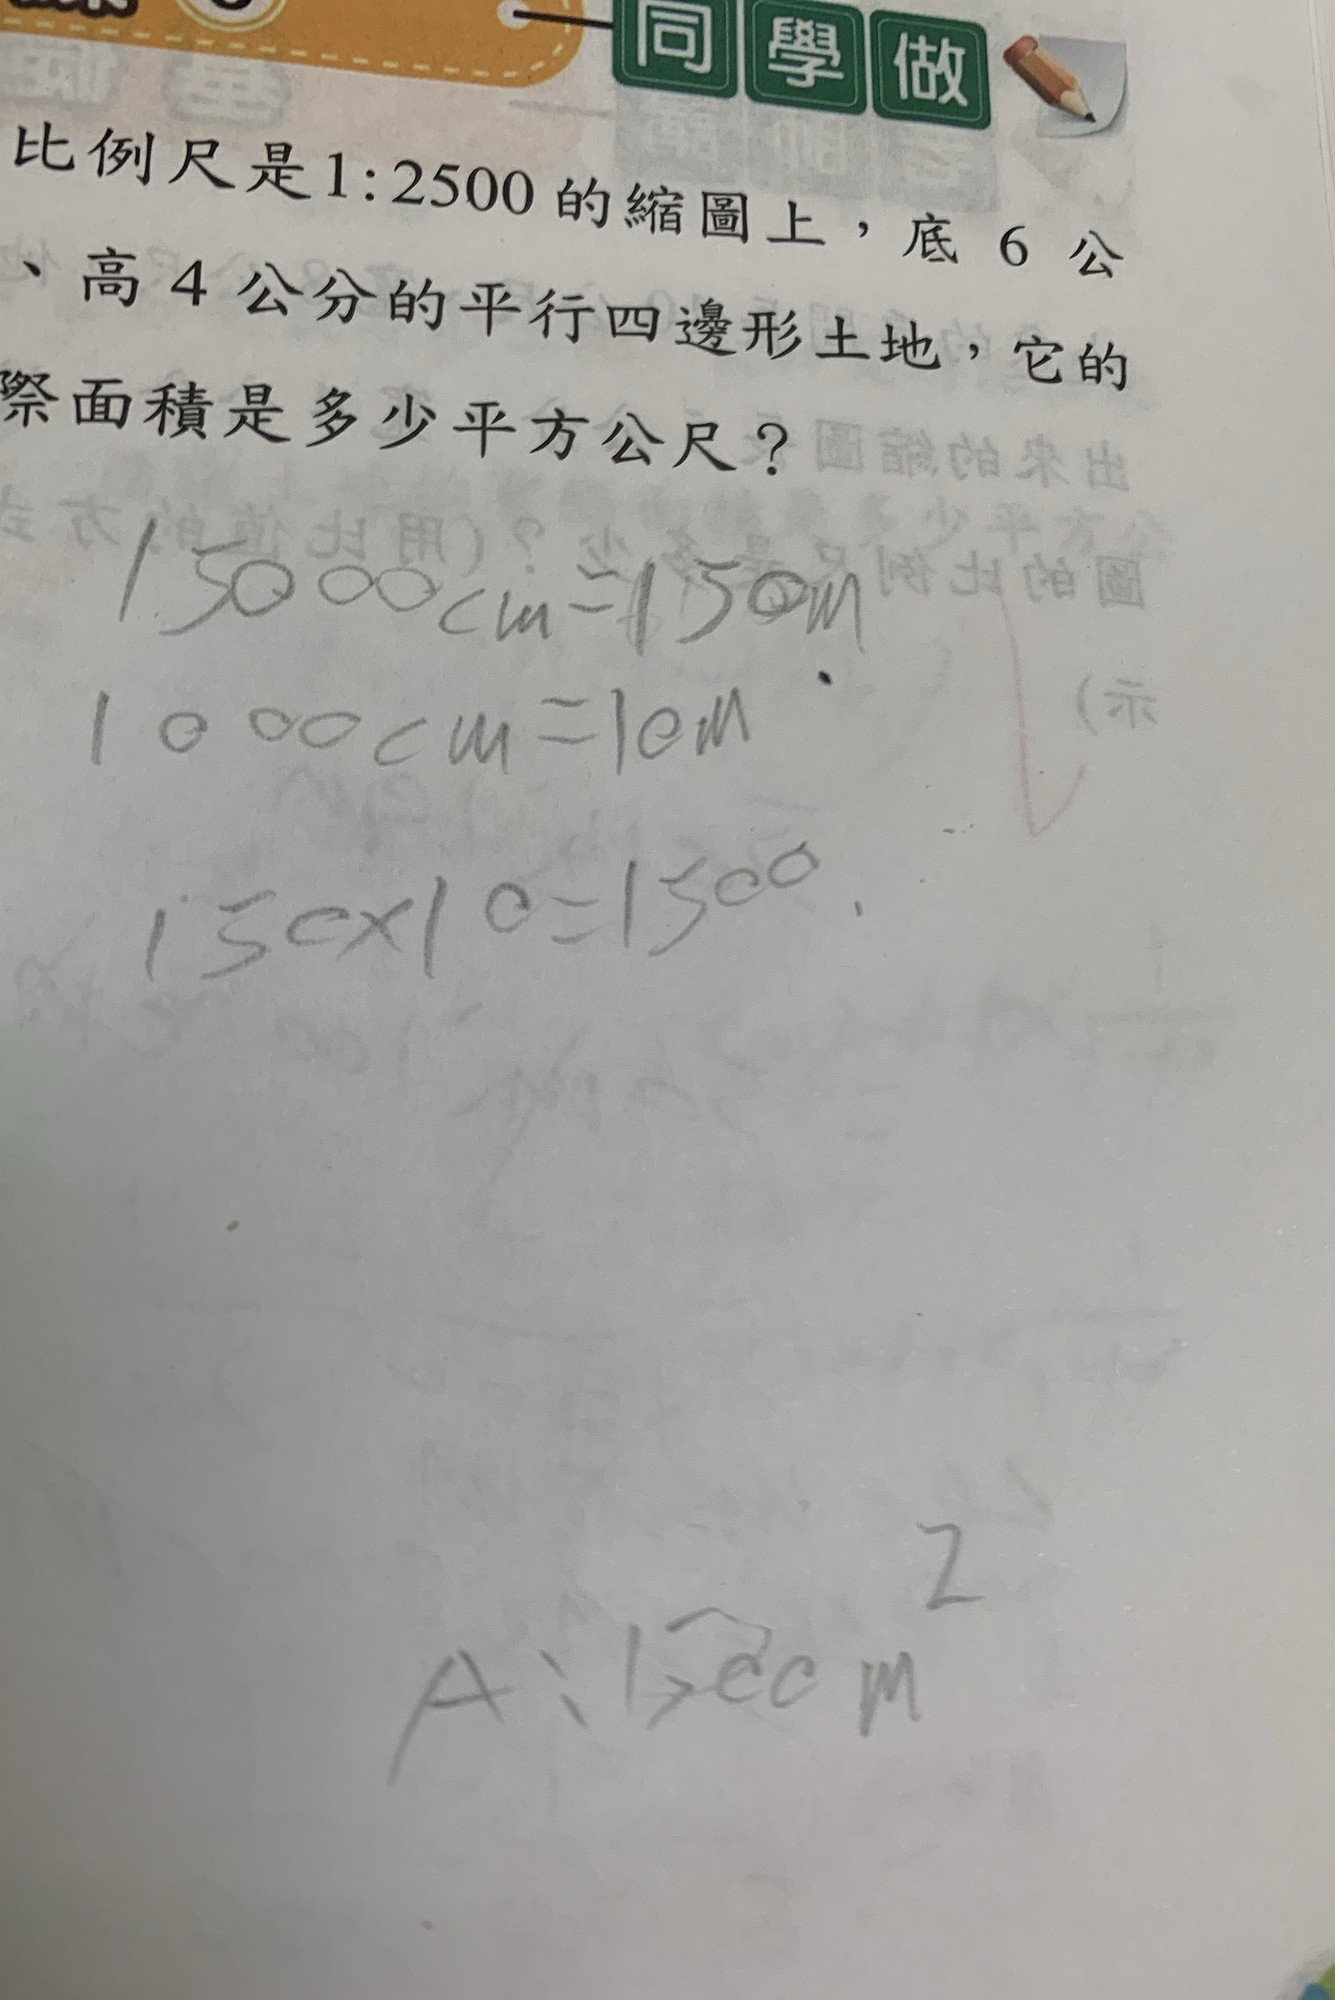 同學做
比例尺是1:2500的縮圖上，底 6 公
、高 4 公分的平行四邊形土地，它的
際面積是多少平方公尺？
15000cm=150m
1000cm=10m
150×10=1500
A:1500m²